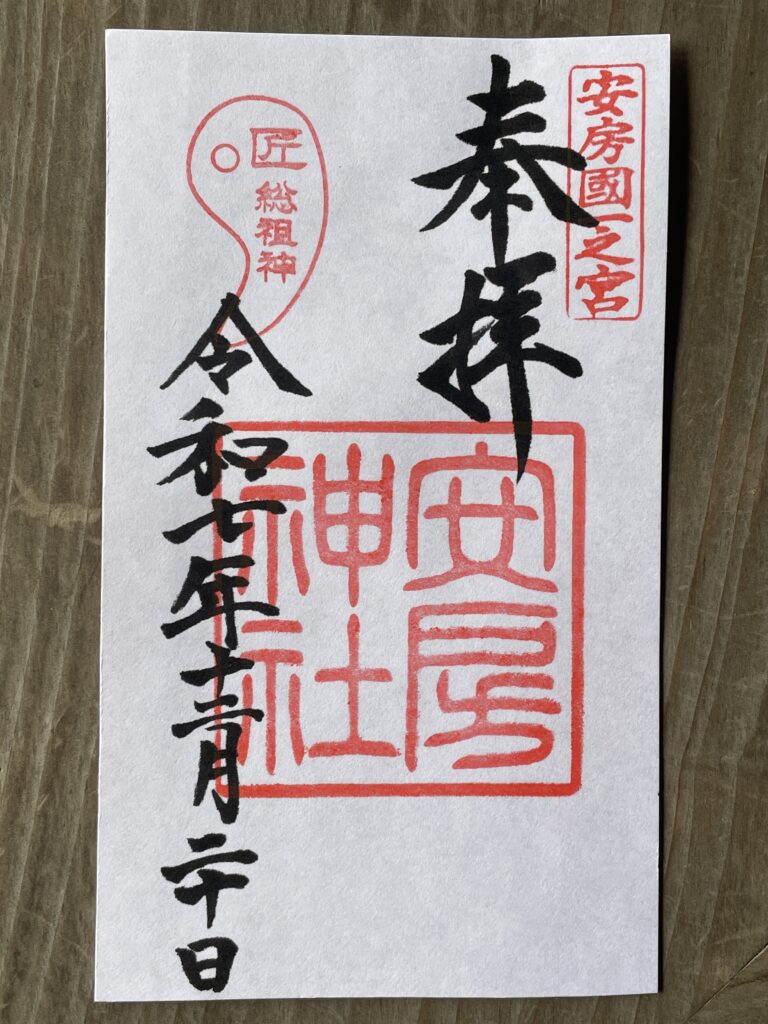 安房國一之宮
奉拝
安房
神社
匠
総祖神
令和七年十二月二十日